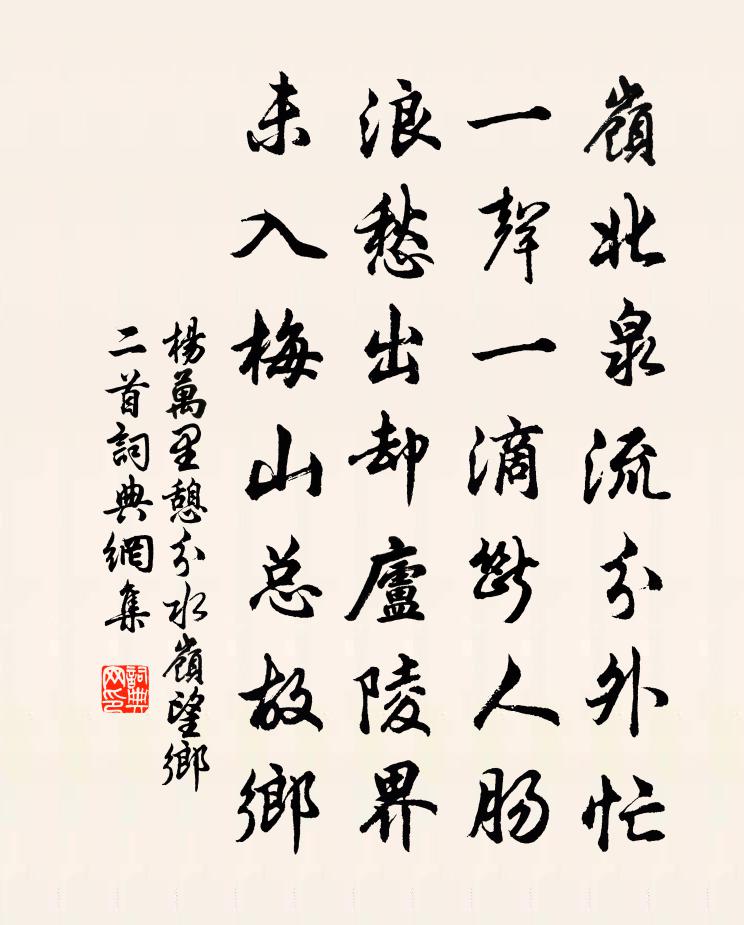 嶺北泉流分外忙
一聲一滴斷人腸
浪愁出却廬陵界
未入梅山总故鄉
楊萬里憩分水嶺望鄉
二首詞典網集
詞典
网印